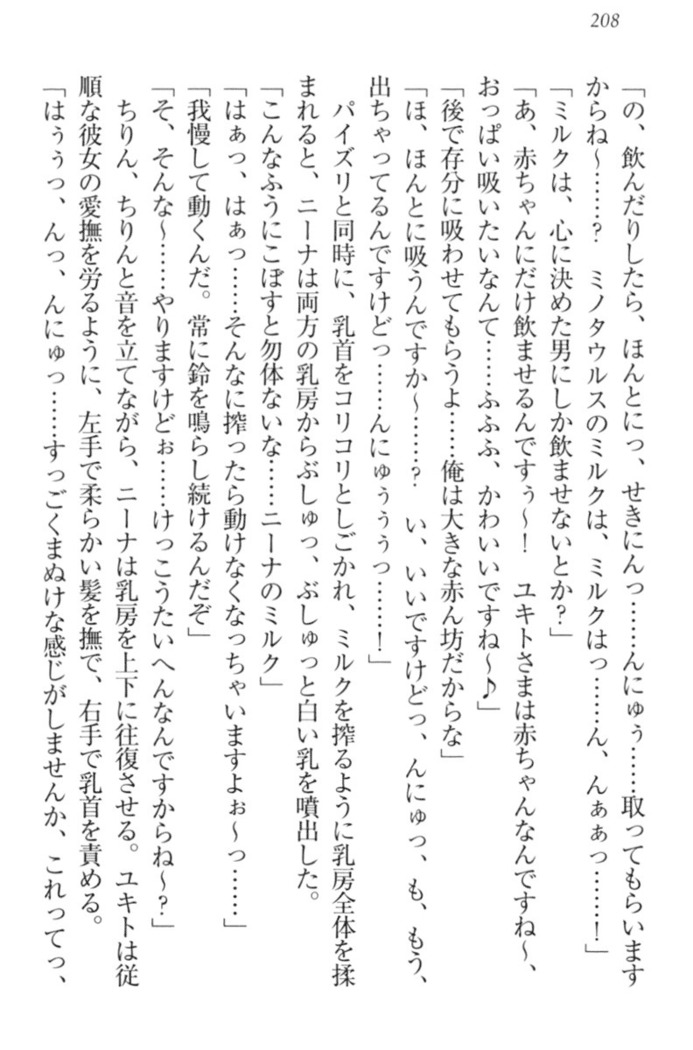 208
「の、飲んだりしたら、ほんとにっ、せきにんっ……んにゅぅ……取ってもらいます
からね～……？　ミノタウルスのミルクは、ミルクはっ……ん、んぁぁっ……！」
「ミルクは、心に決めた男にしか飲ませないとか？」
「あ、赤ちゃんにだけ飲ませるんですぅ～！　ユキトさまは赤ちゃんなんですね～、
おっぱい吸いたいなんて……ふふふ、かわいいですね～♪」
「後で存分に吸わせてもらうよ……俺は大きな赤ん坊だからな」
「ほ、ほんとに吸うんですか～……？　い、いいですけどっ、んにゅっ、も、もう、
出ちゃってるんですけどっ……んにゅぅぅぅっ……！」
パイズリと同時に、乳首をコリコリとしごかれ、ミルクを搾るように乳房全体を揉
まれると、ニーナは両方の乳房からぶしゅっ、ぶしゅっと白い乳を噴出した。
「こんなふうにこぼすと勿体ないな……ニーナのミルク」
「はぁっ、はぁっ……そんなに搾ったら動けなくなっちゃいますよぉ～っ……」
「我慢して動くんだ。常に鈴を鳴らし続けるんだぞ」
「そ、そんな～……やりますけどぉ……けっこうたいへんなんですからね～？」
ちりん、ちりんと音を立てながら、ニーナは乳房を上下に往復させる。ユキトは従
順な彼女の愛撫を労るように、左手で柔らかい髪を撫で、右手で乳首を責める。
「はぅぅっ、んっ、んにゅっ……すっごくまぬけな感じがしませんか、これってっ、